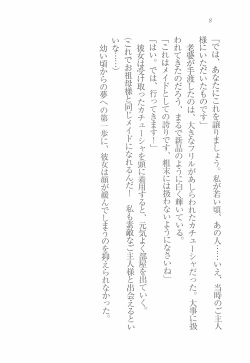 8
「では、あなたにこれを譲りましょう。私が若い頃、あの人……いえ、当時のご主人
様にいただいたものです」
老婆が手渡したのは、大きなフリルがあしらわれたカチューシャだった。大事に扱
われてきたのだろう、まるで新品のように白く輝いている。
「これはメイドとしての誇りです。粗末には扱わないようになさいね」
「はい。では、行ってきます！」
彼女は受け取ったカチューシャを頭に着用すると、元気よく部屋を出ていく。
（これでお祖母様と同じメイドになれるんだ！　私も素敵なご主人様と出会えるとい
いな……）
幼い頃からの夢への第一歩に、彼女は顔が緩んでしまうのを抑えられなかった。